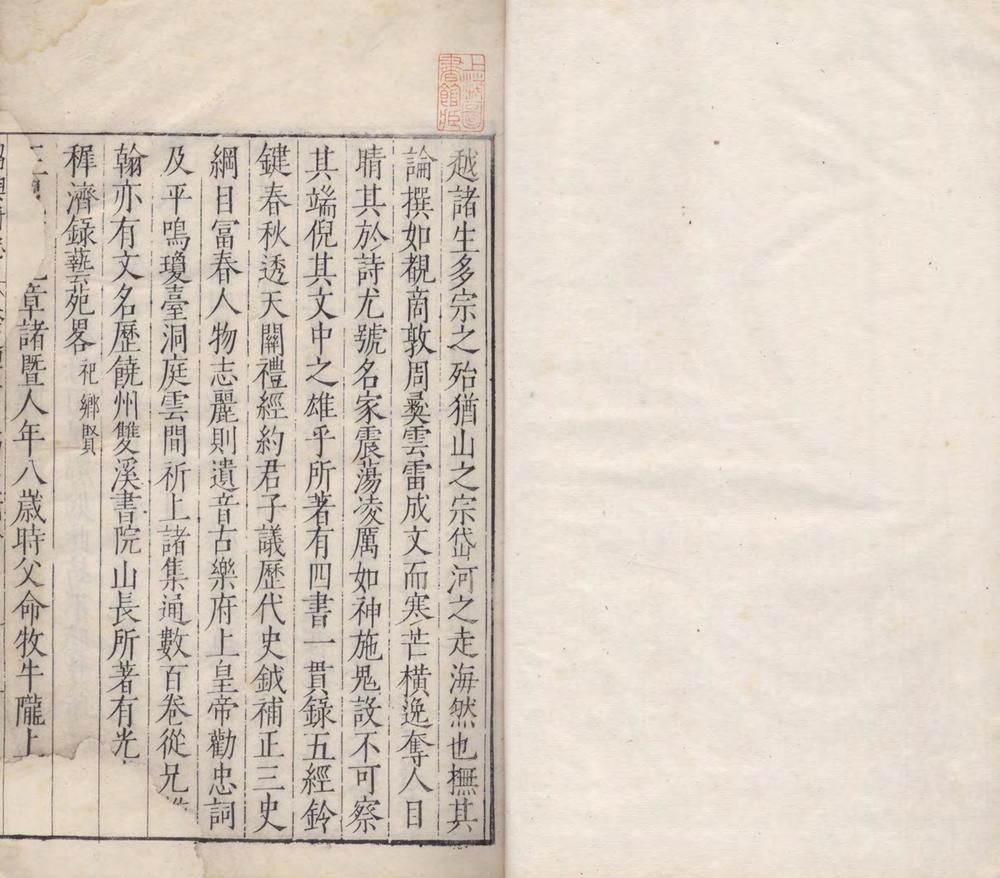 越諸生多宗之殆猶山之宗岱河之走海然也撫其
論撰如覩商敦周彞雲雷成文而寒芒橫逸奪人目
睛其於詩尤號名家震蕩凌厲如神施鬼設不可察
其端倪其文中之雄乎所著有四書一貫錄五經鈐
鍵春秋透天關禮經約君子議歷代史鉞補正三史
綱目冨春人物志麗則遺音古樂府上皇帝勸忠詞
及平鳴瓊臺洞庭雲間祈上諸集通數百卷從兄
翰亦有文名歷饒州雙溪書院山長所著有光
稺濟錄藝苑畧祀鄉賢
章諸暨人年八歲時父命牧牛隴上
上海圖書館藏